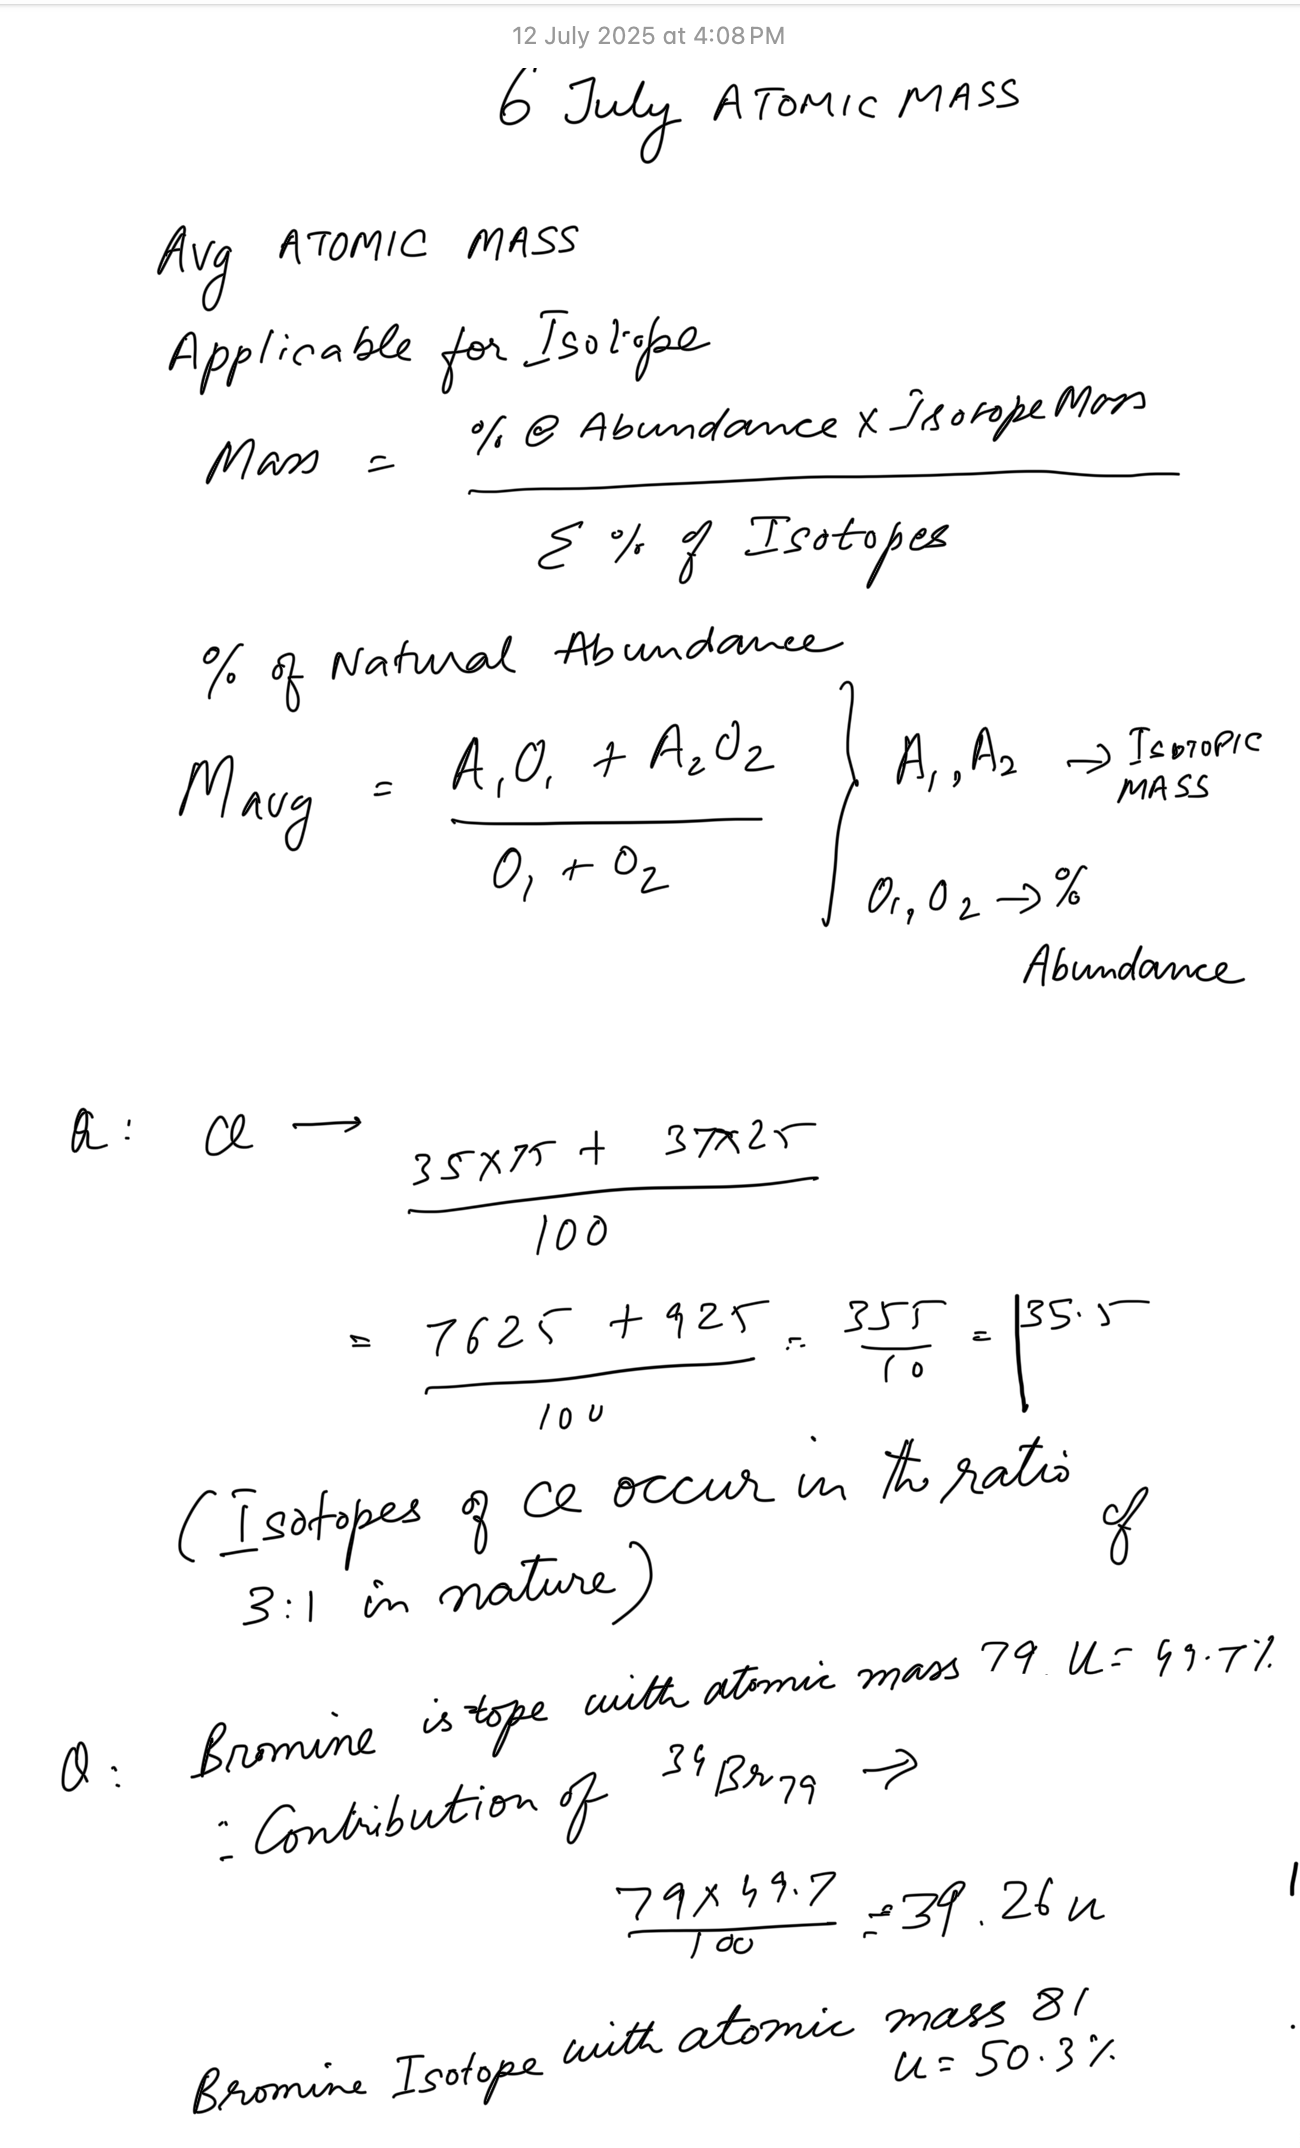 12 July 2025 at 4:08 PM
6 July ATOMIC MASS
Avg ATOMIC MASS
Applicable for Isotope
Mass = % @ Abundance x Isotope Mass
Σ % of Isotopes
% of Natural Abundance
Mavg = A1O1 + A2O2 / O1 + O2 } A1, A2 → ISOTOPIC MASS
O1, O2 → %
Abundance
Q: Cl → 35x75 + 37x25
100
= 7625 + 925 / 100 = 355 / 10 = |35.5
(Isotopes of Cl occur in the ratio of
3:1 in nature)
Q: Bromine istope with atomic mass 79 u = 49.7%
∴ Contribution of 34Br79 →
79 x 49.7 / 100 = 39.26 u
Bromine Isotope with atomic mass 81
u = 50.3%